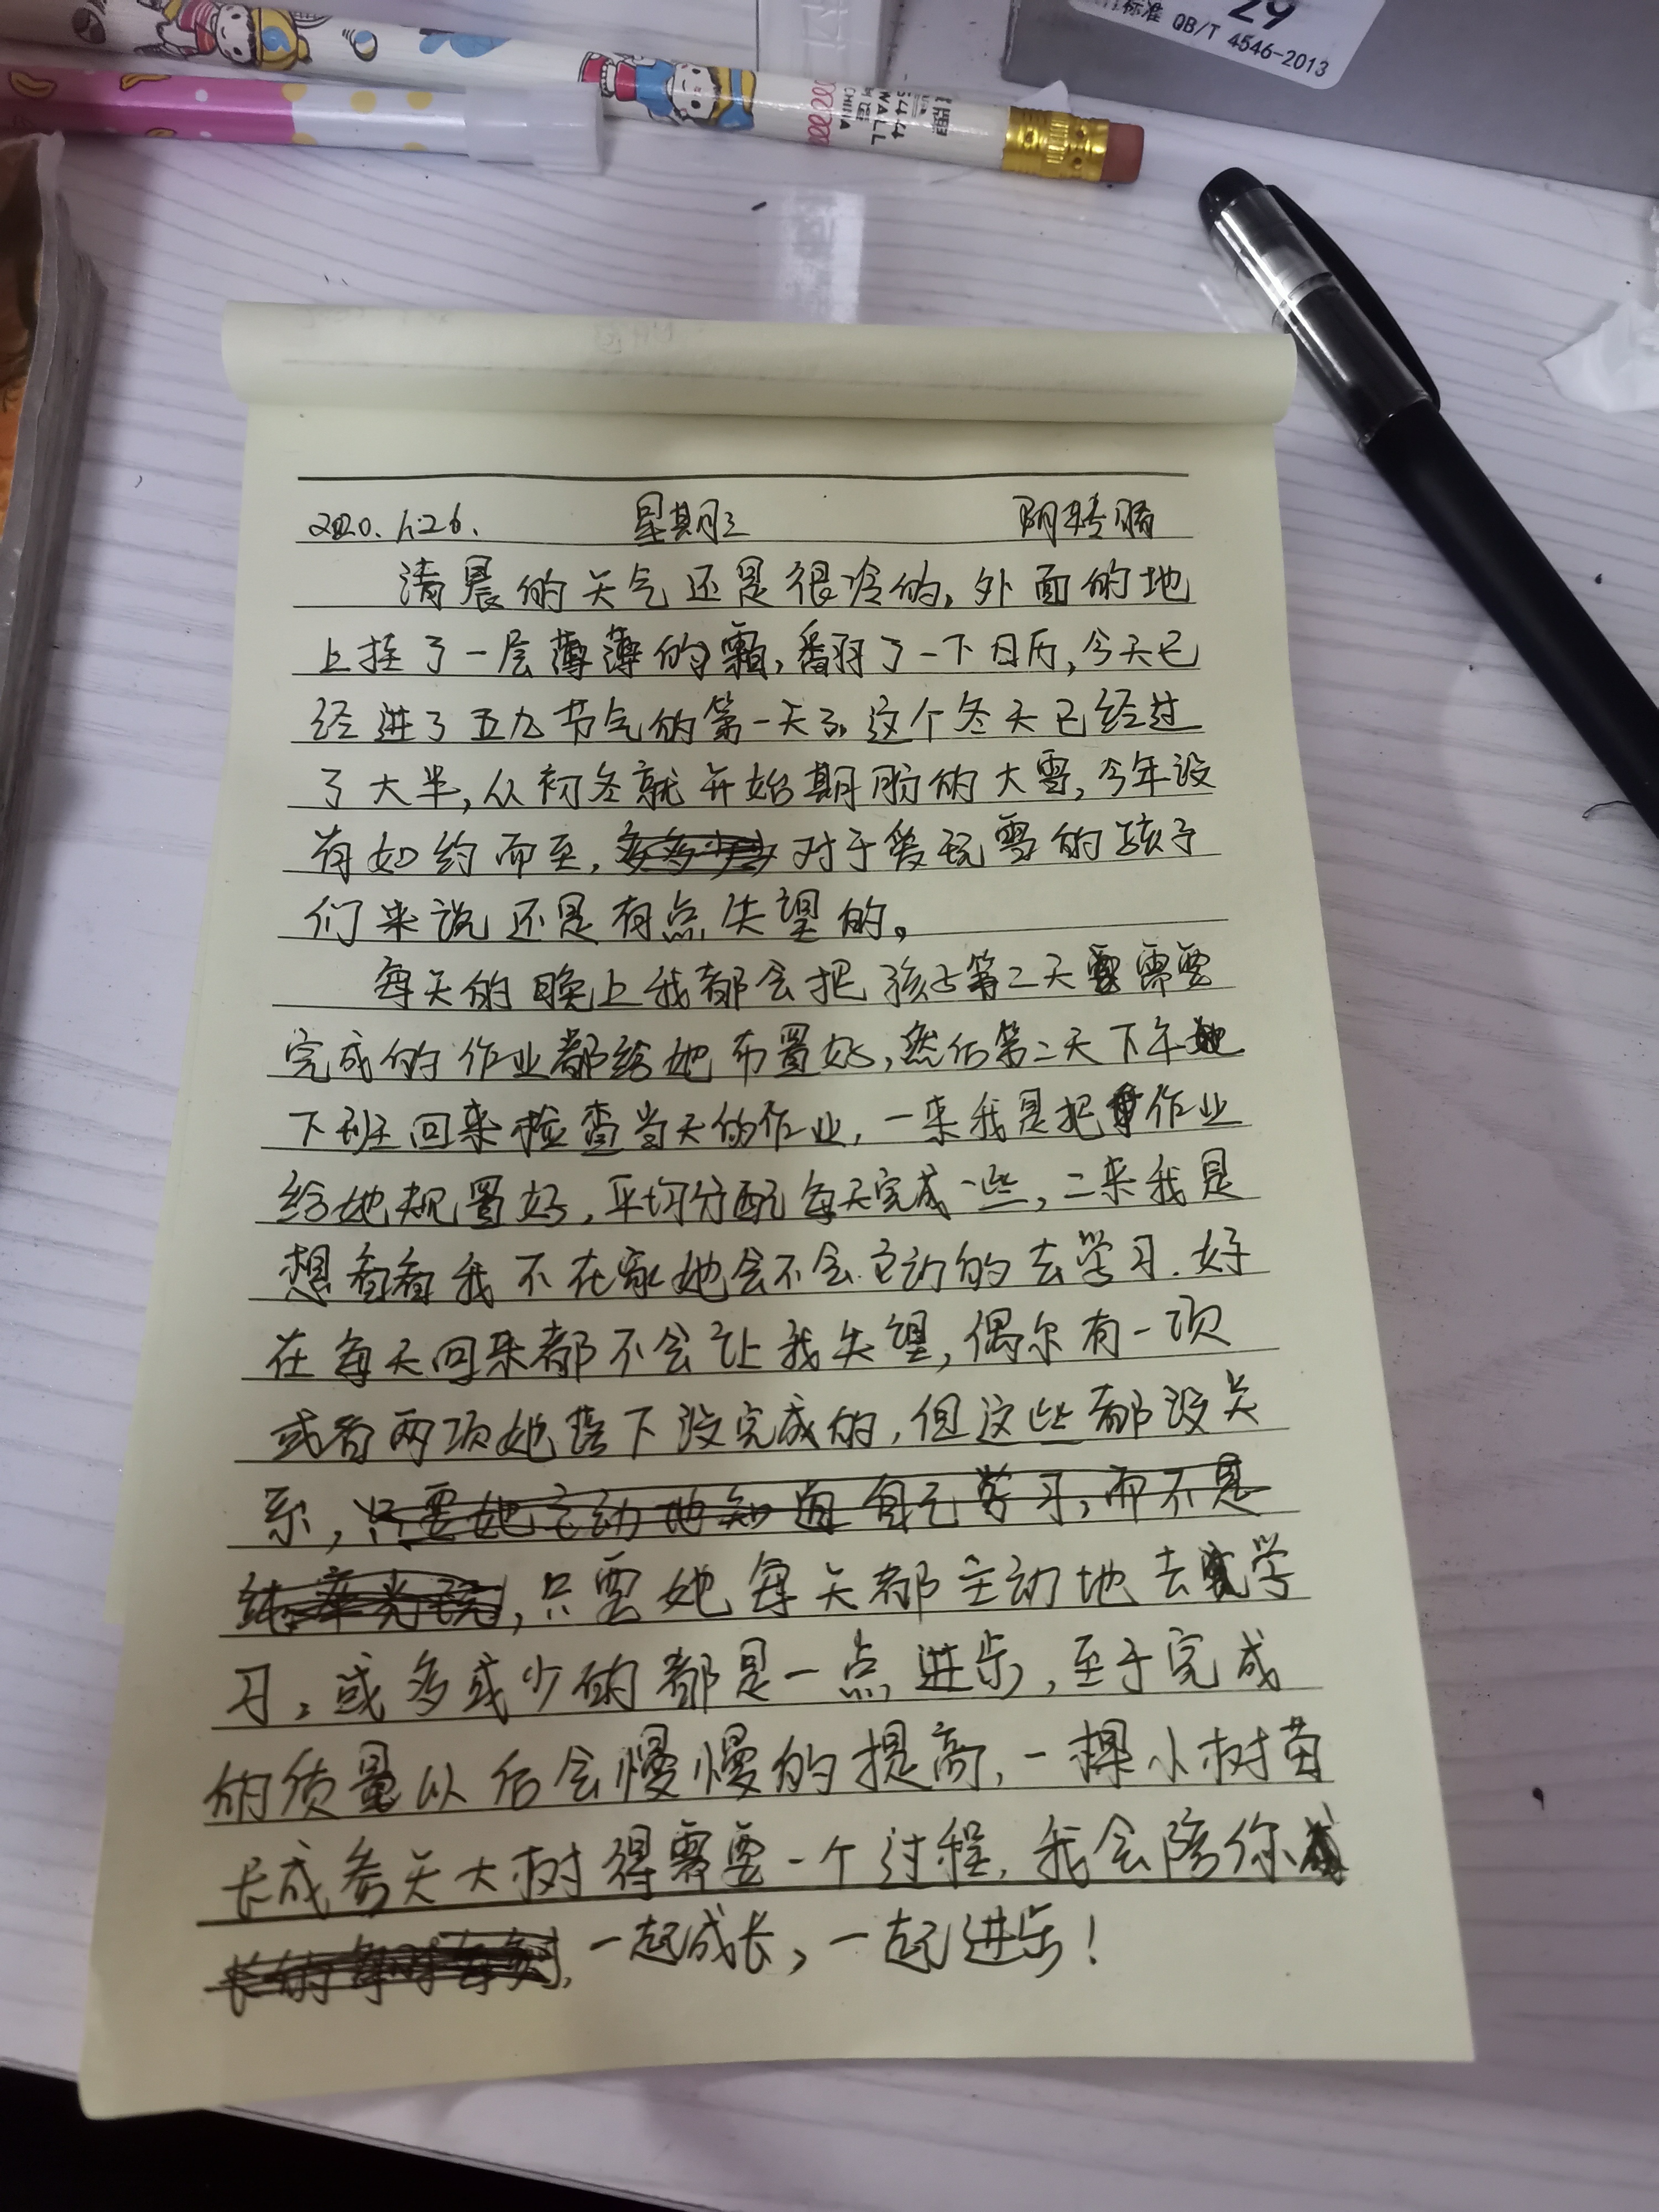 29
标准 QB/T 4546-2013
WALL
CHINA
2020.1.26. 星期三 阴转晴
清晨的天气还是很冷的,外面的地
上挂了一层薄薄的霜,翻了一下日历,今天已
经进了五九节气的第一天了。这个冬天已经过
了大半,从初冬就开始期盼的大雪,今年没
有如约而至,对于爱玩雪的孩子
们来说还是有点失望的。
每天的晚上我都会把孩子第二天需要
完成的作业都给她布置好,然后第二天下午
下班回来检查当天的作业,一来我是把作业
给她规置好,平均分配每天完成一些,二来我是
想看看我不在家她会不会主动的去学习.好
在每天回来都不会让我失望,偶尔有一项
或者两项她落下没完成的,但这些都没关
系,只要她主动地知道自己学习,而不是
纯粹光玩,只要她每天都主动地去学
习,或多或少的都是一点进步,至于完成
的质量以后会慢慢的提高,一棵小树苗
长成参天大树得需要一个过程,我会陪你
一起成长,一起进步!